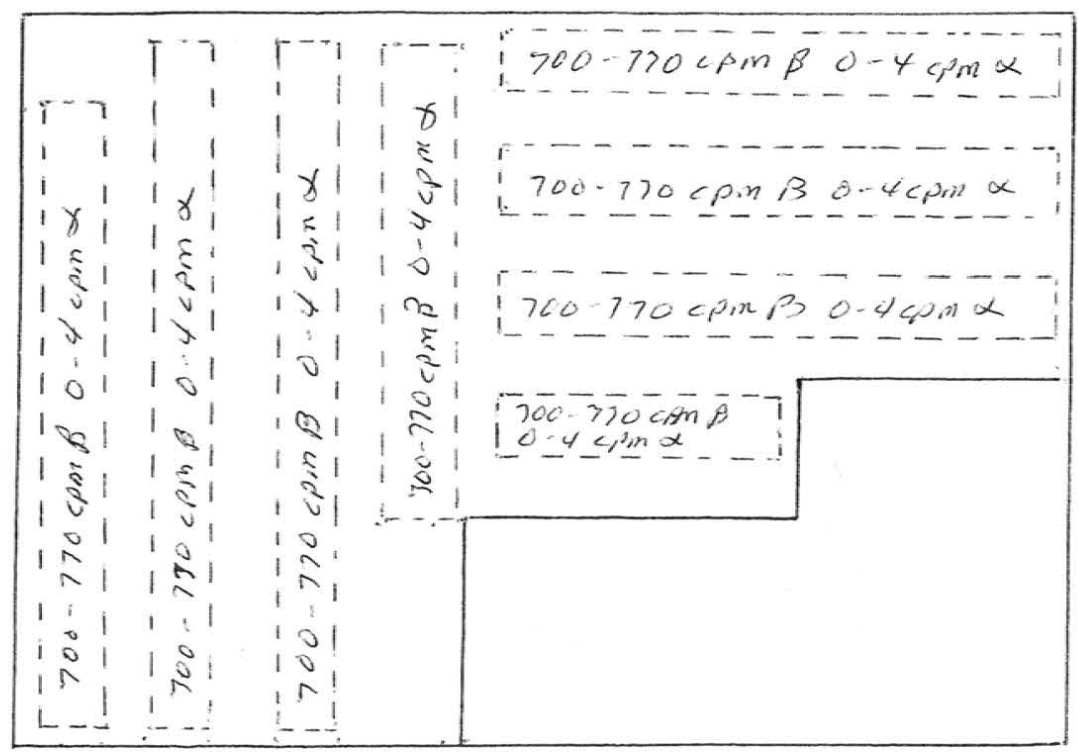 700-770 cpm β 0-4 cpm α
700-770 cpm β 0-4 cpm α
700-770 cpm β 0-4 cpm α
700-770 cpm β 0-4 cpm α
700-770 cpm β 0-4 cpm α
700-770 cpm β 0-4 cpm α
700-770 cpm β 0-4 cpm α
700-770 cpm β
0-4 cpm α